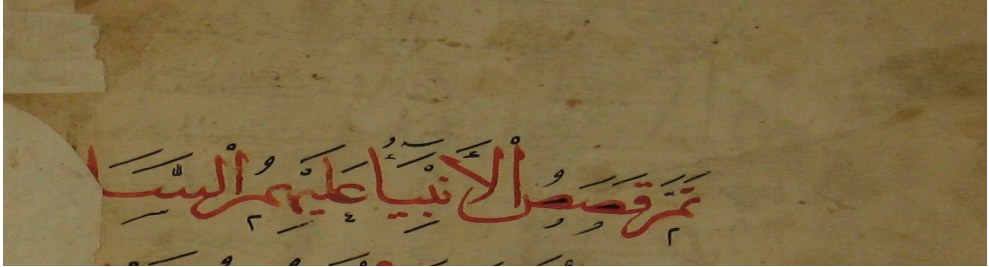 تَمَّ قَصَصُ الْأَنْبِيَاءُ عَلَيْهِمُ السَّلَا